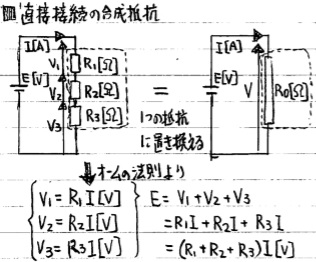 回直接接続の合成抵抗
I[A]
V₁ R₁[Ω]
E[V]
V₂ R₂[Ω]
V₃ R₃[Ω]
=
1つの抵抗
に置き換える
I[A]
E[V]
V R₀[Ω]
⇓オームの法則より
V₁ = R₁I[V]
V₂ = R₂I[V]
V₃ = R₃I[V]
E = V₁ + V₂ + V₃
= R₁I + R₂I + R₃I
= (R₁ + R₂ + R₃)I[V]